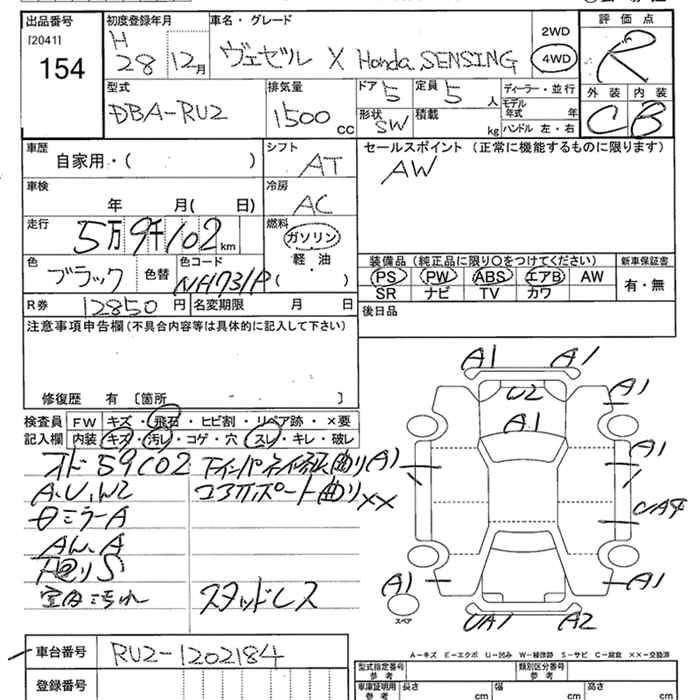 出品番号
[2041]
154
初度登録年月
H
28 12月
車名・グレード
ヴェゼル X Honda SENSING
2WD
4WD
評価点
R
外装 内装
C B
型式
DBA-RU2
排気量
1500 cc
ドア 5
形状 SW
定員 5 人
積載 kg
ディーラー・並行
モデル年式 年
ハンドル 左・右
車歴
自家用・( )
シフト
AT
セールスポイント (正常に機能するものに限ります)
AW
車検
年 月( 日)
冷房
AC
走行
5万9千102 km
燃料
ガソリン
軽・油
( )
色
ブラック
色替
色コード
NH731P
装備品 (純正品に限り○をつけてください)
新車保証書
PS PW ABS エアB AW
SR ナビ TV カワ
有・無
R券 12850円
名変期限 月 日
後日品
注意事項申告欄(不具合内容等は具体的に記入して下さい)
修復歴 有 〔箇所 〕
検査員記入欄
FW キズ・飛石・ヒビ割・リペア跡・×要
内装 キズ・汚れ・コゲ・穴・スレ・キレ・破レ
オド59102
A.U.W2
ミラーA
AW.A
S
室内汚れ
曲り
コアサポート曲り××
スタッドレス
A1 A1
U2
A1
A1
A1 A1
A1 A1
UA1 A2
スペア
A-キズ E-エクボ U-凹み W-補修跡 S-サビ C-腐食 ××-交換済
車台番号 RU2-1202184
登録番号
型式指定番号 参考
類別区分番号 参考
車庫証明用 参考
長さ cm 幅 cm 高さ cm